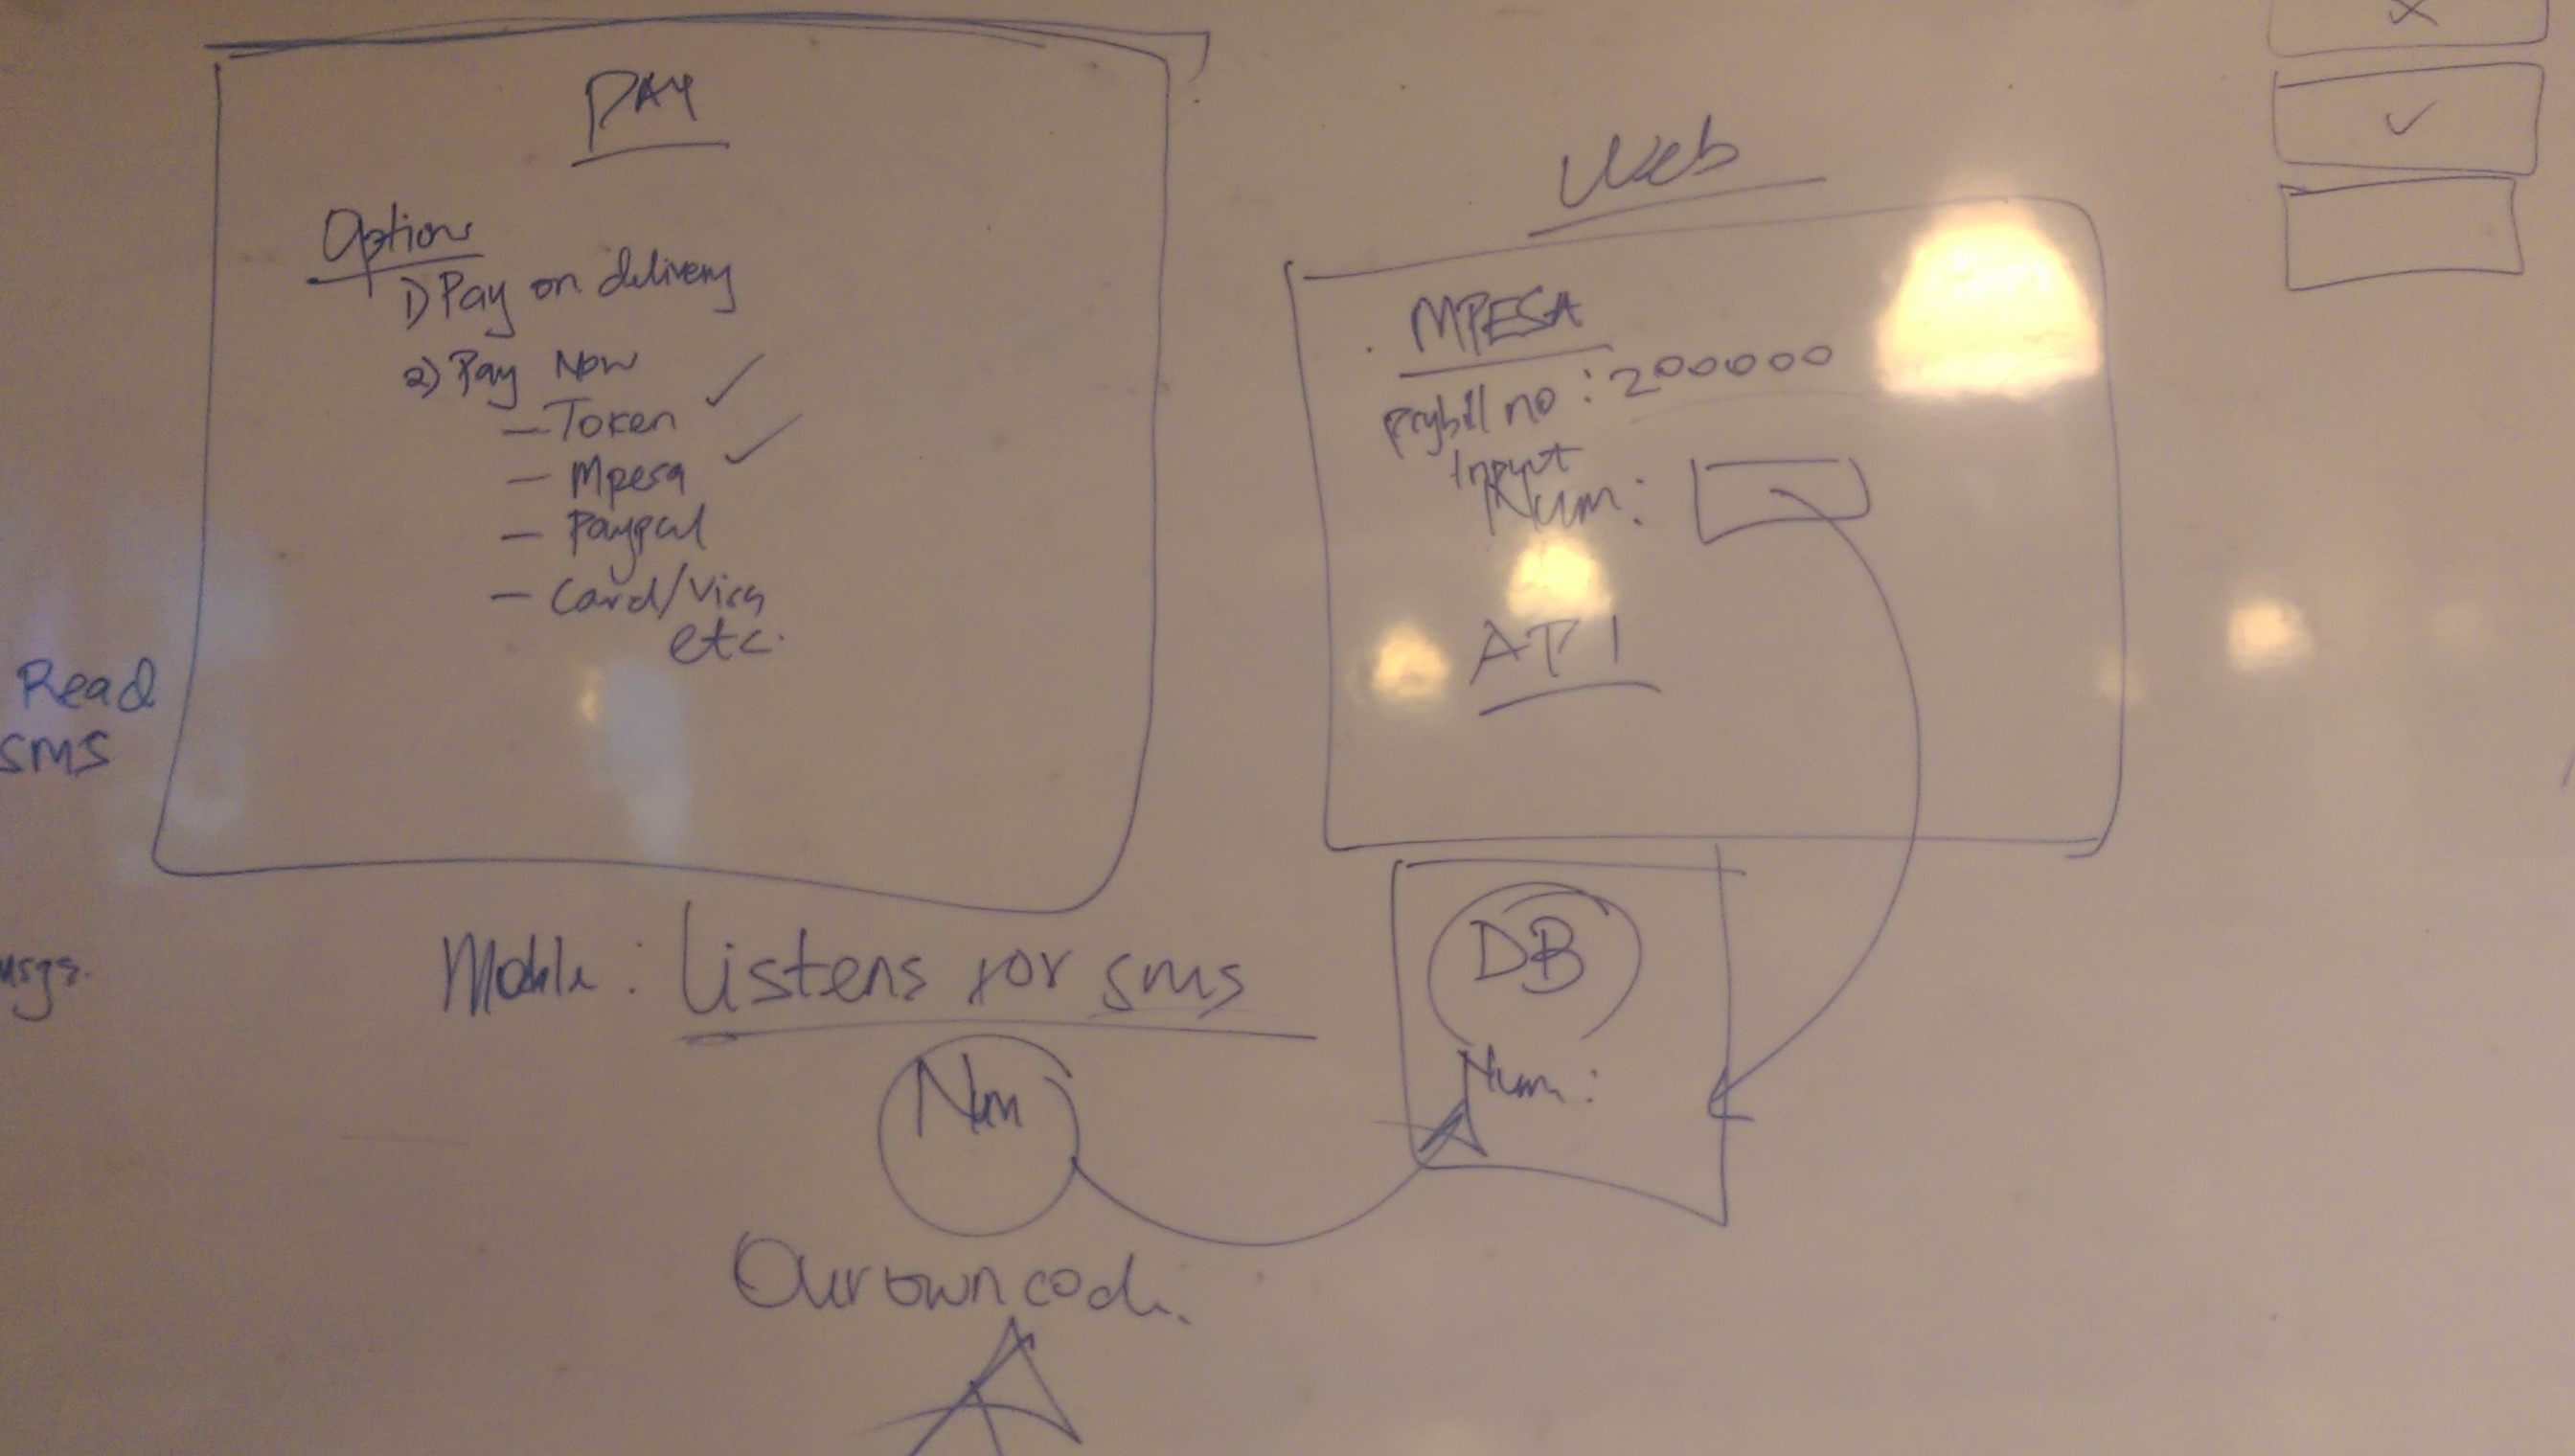 PAY
Options
1) Pay on delivery
2) Pay Now
— Token ✓
— Mpesa ✓
— Paypal
— Card/Visa
etc.
Read
SMS
msgs.
Web
MPESA
Paybill no : 200000
Input
Num:
API
DB
Num:
Mobile: Listens for sms
Num
Our own code.